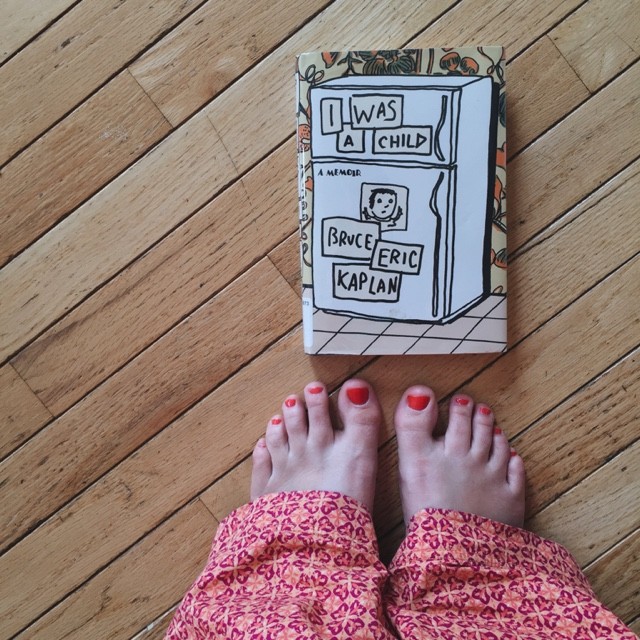 I WAS
A CHILD
A MEMOIR
BRUCE
ERIC
KAPLAN